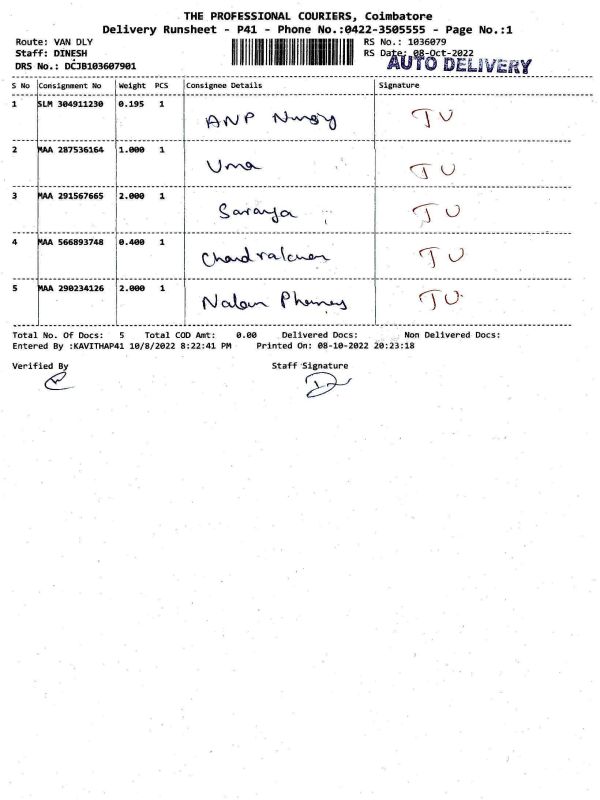 THE PROFESSIONAL COURIERS, Coimbatore
Delivery Runsheet - P41 - Phone No.:0422-3505555 - Page No.:1
Route: VAN DLY RS No.: 1036079
Staff: DINESH RS Date: 08-Oct-2022
DRS No.: DCJB103607901 AUTO DELIVERY
S No Consignment No Weight PCS Consignee Details Signature
1 SLM 304911230 0.195 1 ANP TU
2 MAA 287536164 1.000 1 Uma TU
3 MAA 291567665 2.000 1 Saranya TU
4 MAA 566893748 0.400 1 TU
5 MAA 290234126 2.000 1 TU
Total No. Of Docs: 5 Total COD Amt: 0.00 Delivered Docs: Non Delivered Docs:
Entered By :KAVITHAP41 10/8/2022 8:22:41 PM Printed On: 08-10-2022 20:23:18
Verified By Staff Signature